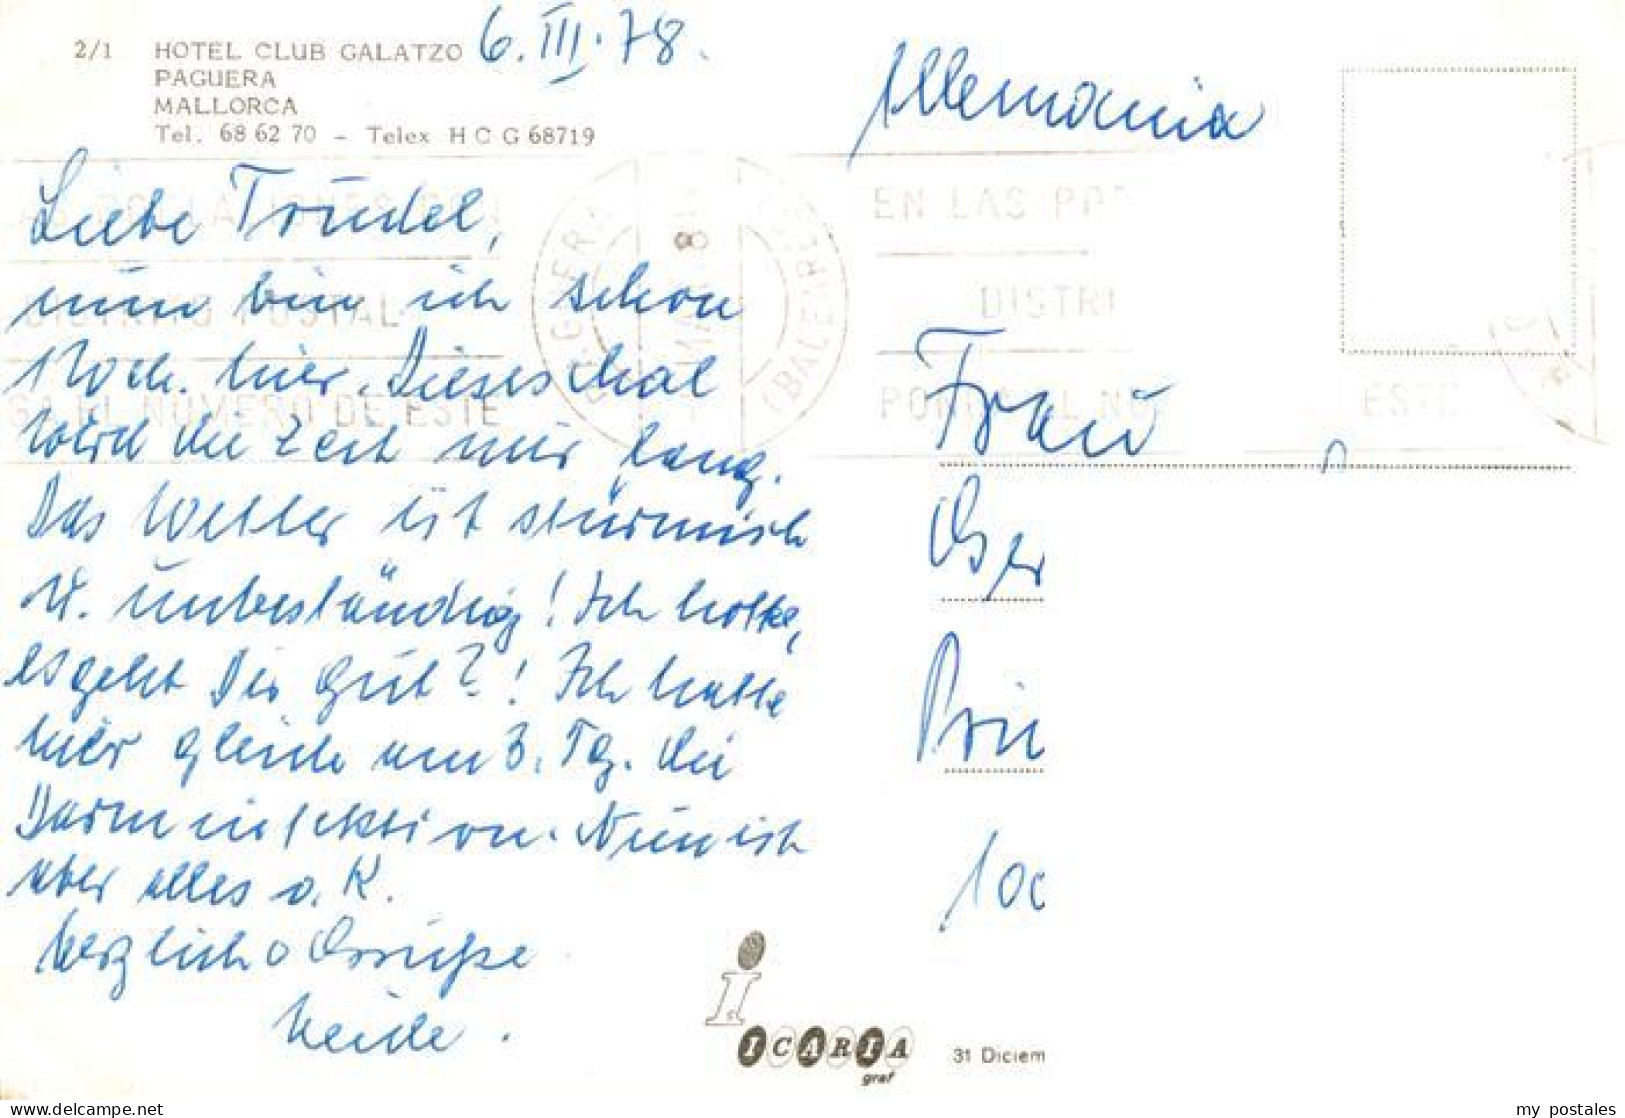 2/1 HOTEL CLUB GALATZO
PAGUERA
MALLORCA
Tel. 68 62 70 - Telex H C G 68719
6. III. 78.
Liebe Trudel,
nun bin ich schon
1 Woch. hier. Dieses Mal
wird die Zeit mir lang.
Das Wetter ist stürmisch
u. unbeständig! Ich hoffe,
es geht Dir gut?! Ich hatte
hier gleich am 3. Tg. die
Darminfektion. Nun ist
aber alles o. K.
Herzliche Grüße
Heide.
Allemania
EN LAS PO
DISTRI
DISTRITO POSTAL
EL NUMERO DE ESTE
PAGUERA
(BALEARES)
8 MAR
ESTE
Frau
Pri
100
ICARIA
graf
31 Diciem
my_postales